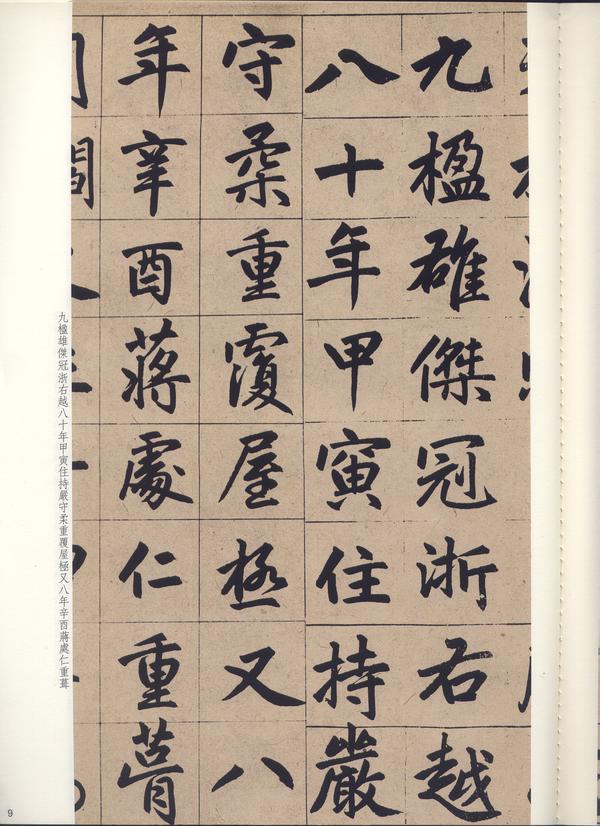 九楹雄傑冠浙右越
八十年甲寅住持嚴
守柔重覆屋極又八
年辛酉蔣處仁重葺
九楹雄傑冠浙右越八十年甲寅住持嚴守柔重覆屋極又八年辛酉蔣處仁重葺
9